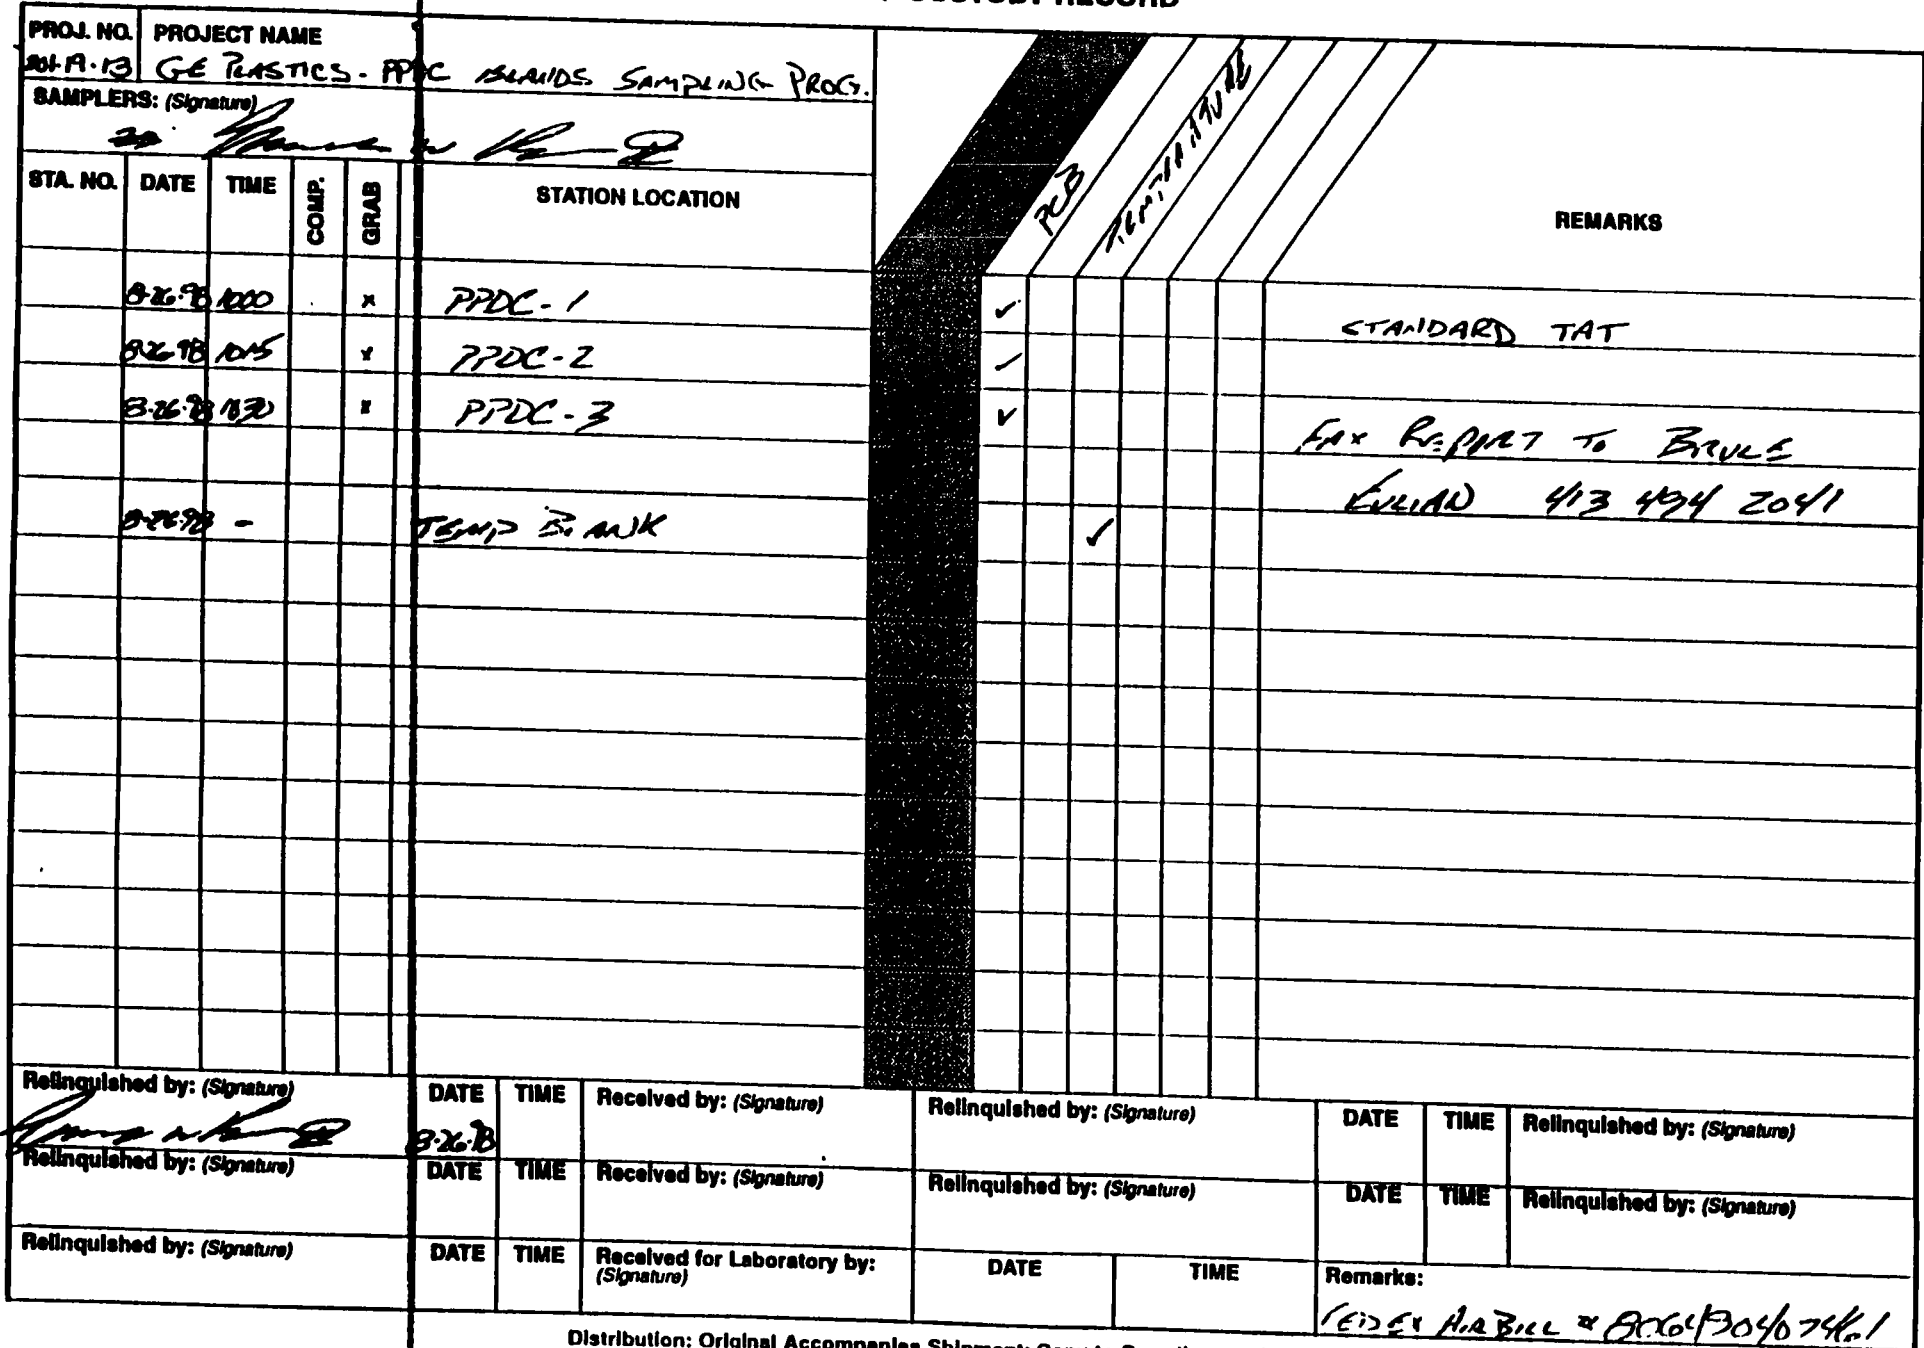 CUSTODY RECORD
PROJ. NO. PROJECT NAME
GE PLASTICS - PPDC SAMPLING PROG.
SAMPLERS: (Signature)
STA. NO. DATE TIME COMP. GRAB STATION LOCATION PCB TEMPERATURE REMARKS
8-26-98 1000 x PPDC-1 ✓
STANDARD TAT
8-26-98 1015 x PPDC-2 ✓
8-26-98 1030 x PPDC-3 ✓
FAX REPORT TO BRUCE
413 494 2041
8-26-98 - TEMP BLANK ✓
Relinquished by: (Signature) DATE TIME Received by: (Signature) Relinquished by: (Signature) DATE TIME Relinquished by: (Signature)
8-26-98
Relinquished by: (Signature) DATE TIME Received by: (Signature) Relinquished by: (Signature) DATE TIME Relinquished by: (Signature)
Relinquished by: (Signature) DATE TIME Received for Laboratory by: (Signature) DATE TIME Remarks:
FEDEX AIR BILL #
Distribution: Original Accompanies Shipment;